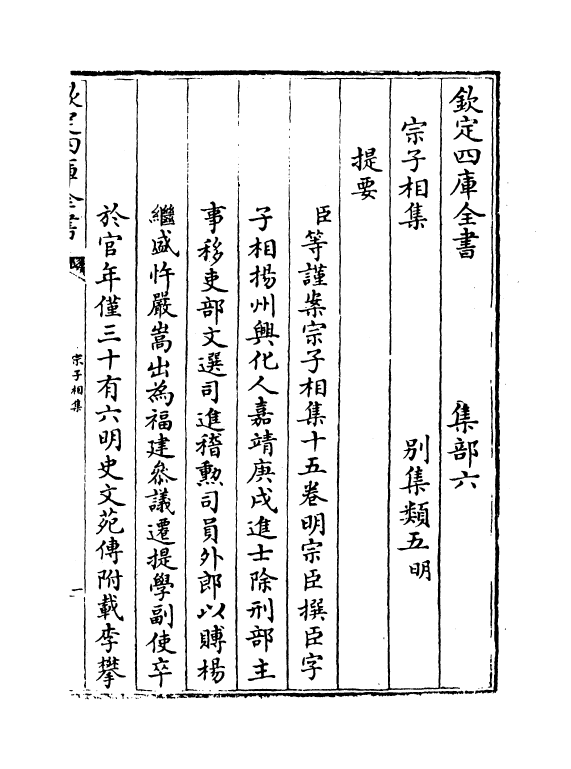 欽定四庫全書 集部六
宗子相集 別集類五明
提要
臣等謹案宗子相集十五卷明宗臣撰臣字
子相揚州興化人嘉靖庚戌進士除刑部主
事移吏部文選司進稽勲司員外郎以賻楊
繼盛忤嚴嵩出為福建叅議遷提學副使卒
於官年僅三十有六明史文苑傳附載李攀
欽定四庫全書
宗子相集
一